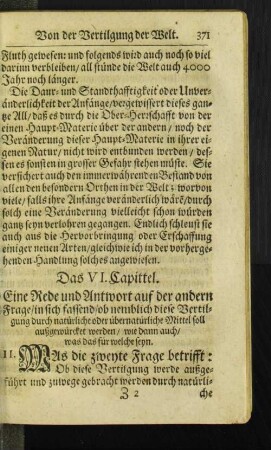 Von der Vertilgung der Welt. 371
Fluth gewesen: und folgends wird auch noch so viel
darinn verbleiben / all stünde die Welt auch 4000
Jahr noch länger.
Die Daur- und Standthafftigkeit oder Unver-
änderlichkeit der Anfänge / vergewissert dieses gan-
tze All / daß es durch die Ober-Herrschafft von der
einen Haupt-Materie über der andern / noch der
Veränderung dieser Haupt-Materie in ihrer ei-
genen Natur / nicht wird entbunden werden / des-
sen es sonsten in grosser Gefahr stehen müste. Sie
versichert auch den immerwährenden Bestand von
allen den besondern Orthen in der Welt; worvon
viele / falls ihre Anfänge veränderlich wärẽ / durch
solch eine Veränderung vielleicht schon würden
gantz seyn verlohren gegangen. Endlich schleust sie
auch aus die Hervorbringung oder Erschaffung
einiger neuen Arten / gleichwie ich in der vorherge-
henden Handlung solches angewiesen.
Das VI. Capittel.
Eine Rede und Antwort auf der andern
Frage / in sich fassend / ob nemblich diese Vertil-
gung durch natürliche oder übernatürliche Mittel soll
außgewürcket werden / wie dann auch /
was das für welche seyn.
II. WAs die zweyte Frage betrifft:
Ob diese Vertilgung werde außge-
führt und zuwege gebracht werden durch natürli-
Z 2 che